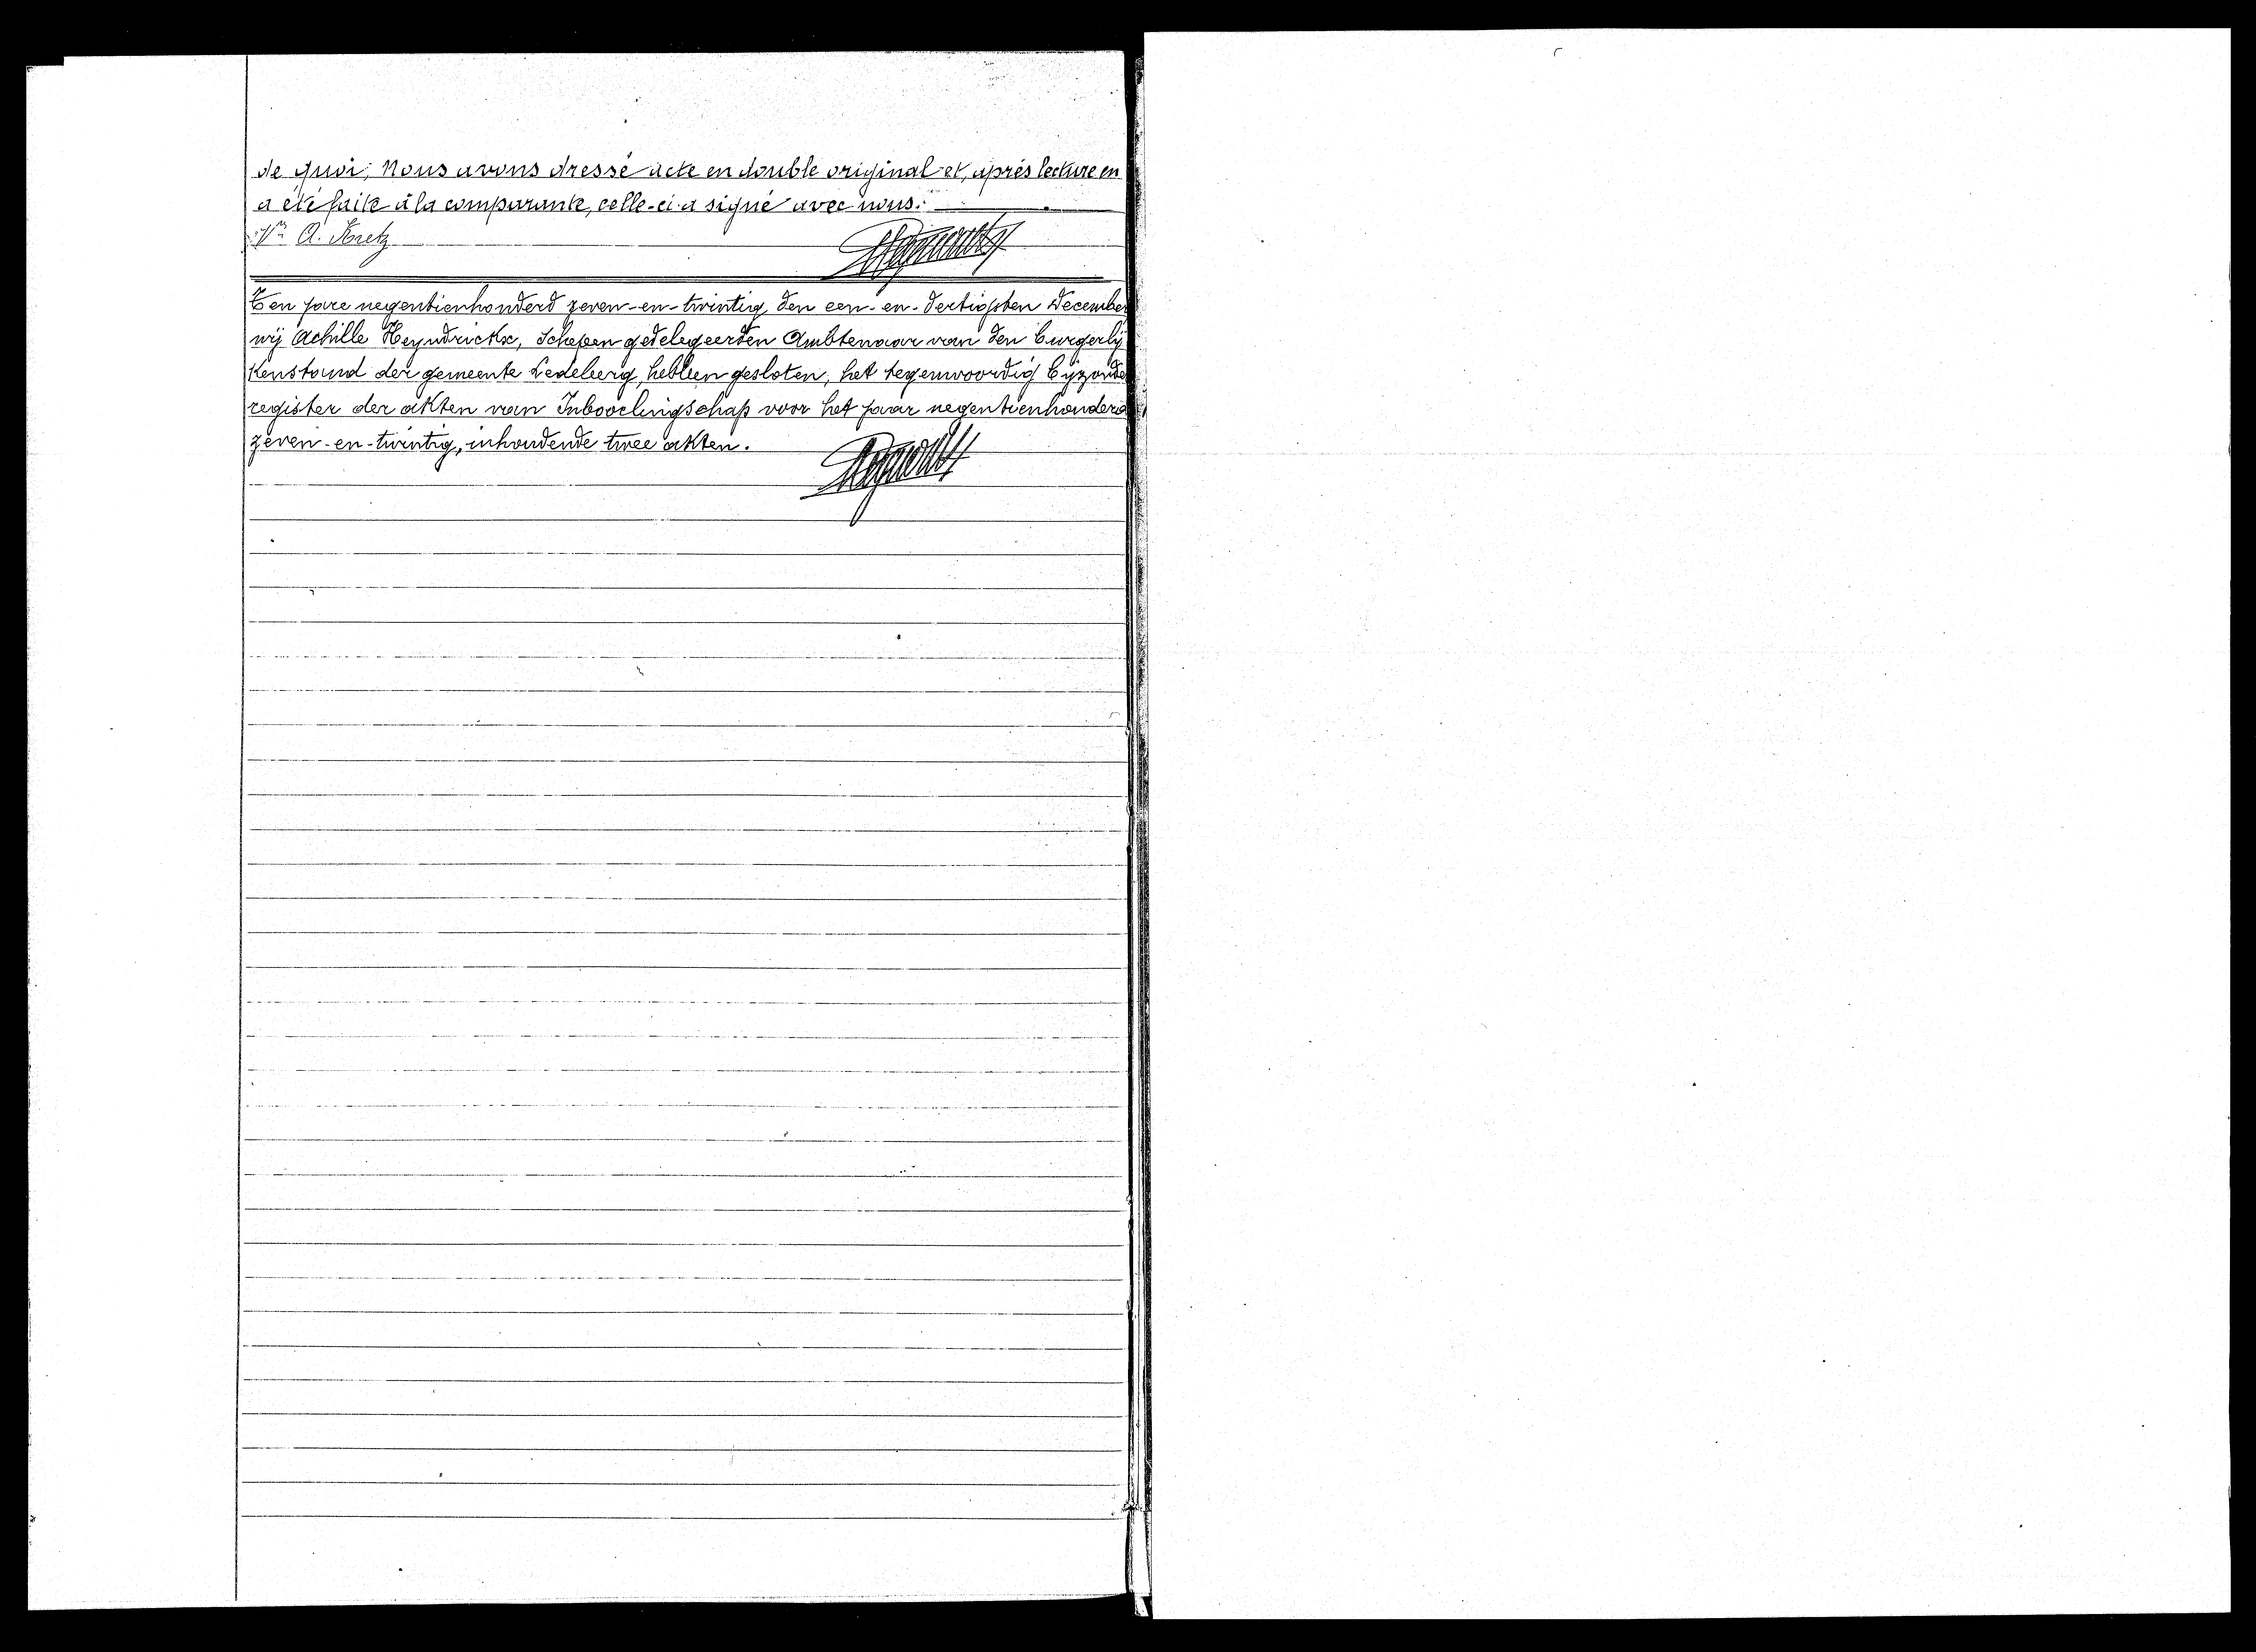 de quoi; Nous avons dressé acte en double original et, après lecture en
a été faite à la comparante, celle-ci a signé avec nous.
Ve A. Kretz
Ten jare negentienhonderd zeven-en-twintig den een-en-dertigsten December
wij Achille Heyndrickx, Schepen gedelegeerden Ambtenaar van den burgerlij
kenstand der gemeente Ledeberg, hebben gesloten, het tegenwoordig bijzonder
register der akten van Inboorlingschap voor het jaar negentienhonderd
zeven-en-twintig, inhoudende twee akten.